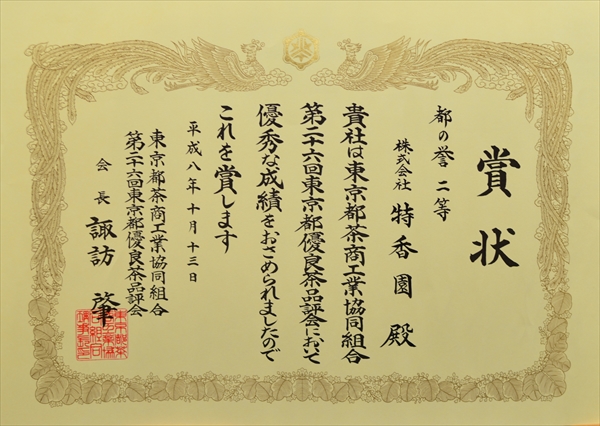 賞状
都の誉 二等
株式会社 特香園 殿
貴社は東京都茶商工業協同組合
第二十六回東京都優良茶品評会において
優秀な成績をおさめられましたので
これを賞します
平成八年十月十三日
東京都茶商工業協同組合
第二十六回東京都優良茶品評会
会長 諏訪 肇